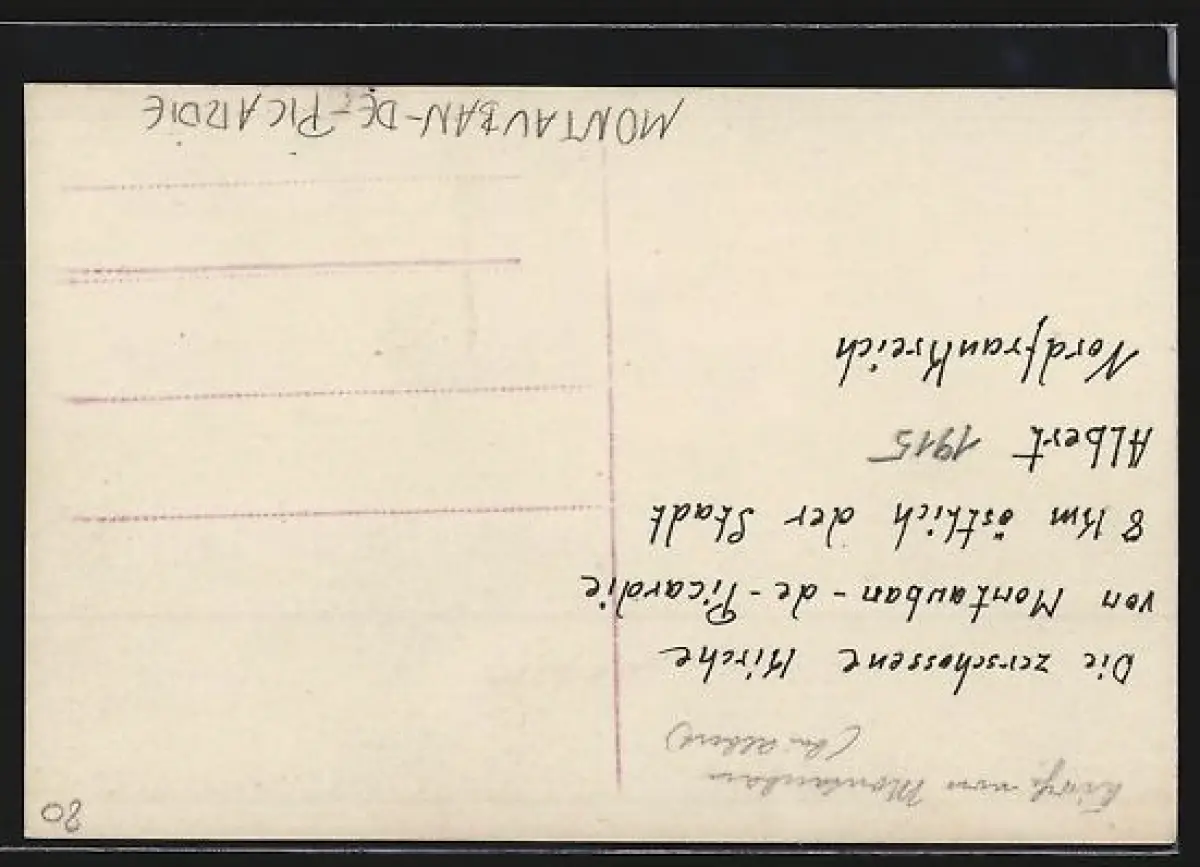 Kirche von Montauban
(bei Albert)
Die zerschossene Kirche
von Montauban-de-Picardie
8 Km östlich der Stadt
Albert 1915
Nordfrankreich
MONTAUBAN-DE-PICARDIE
20